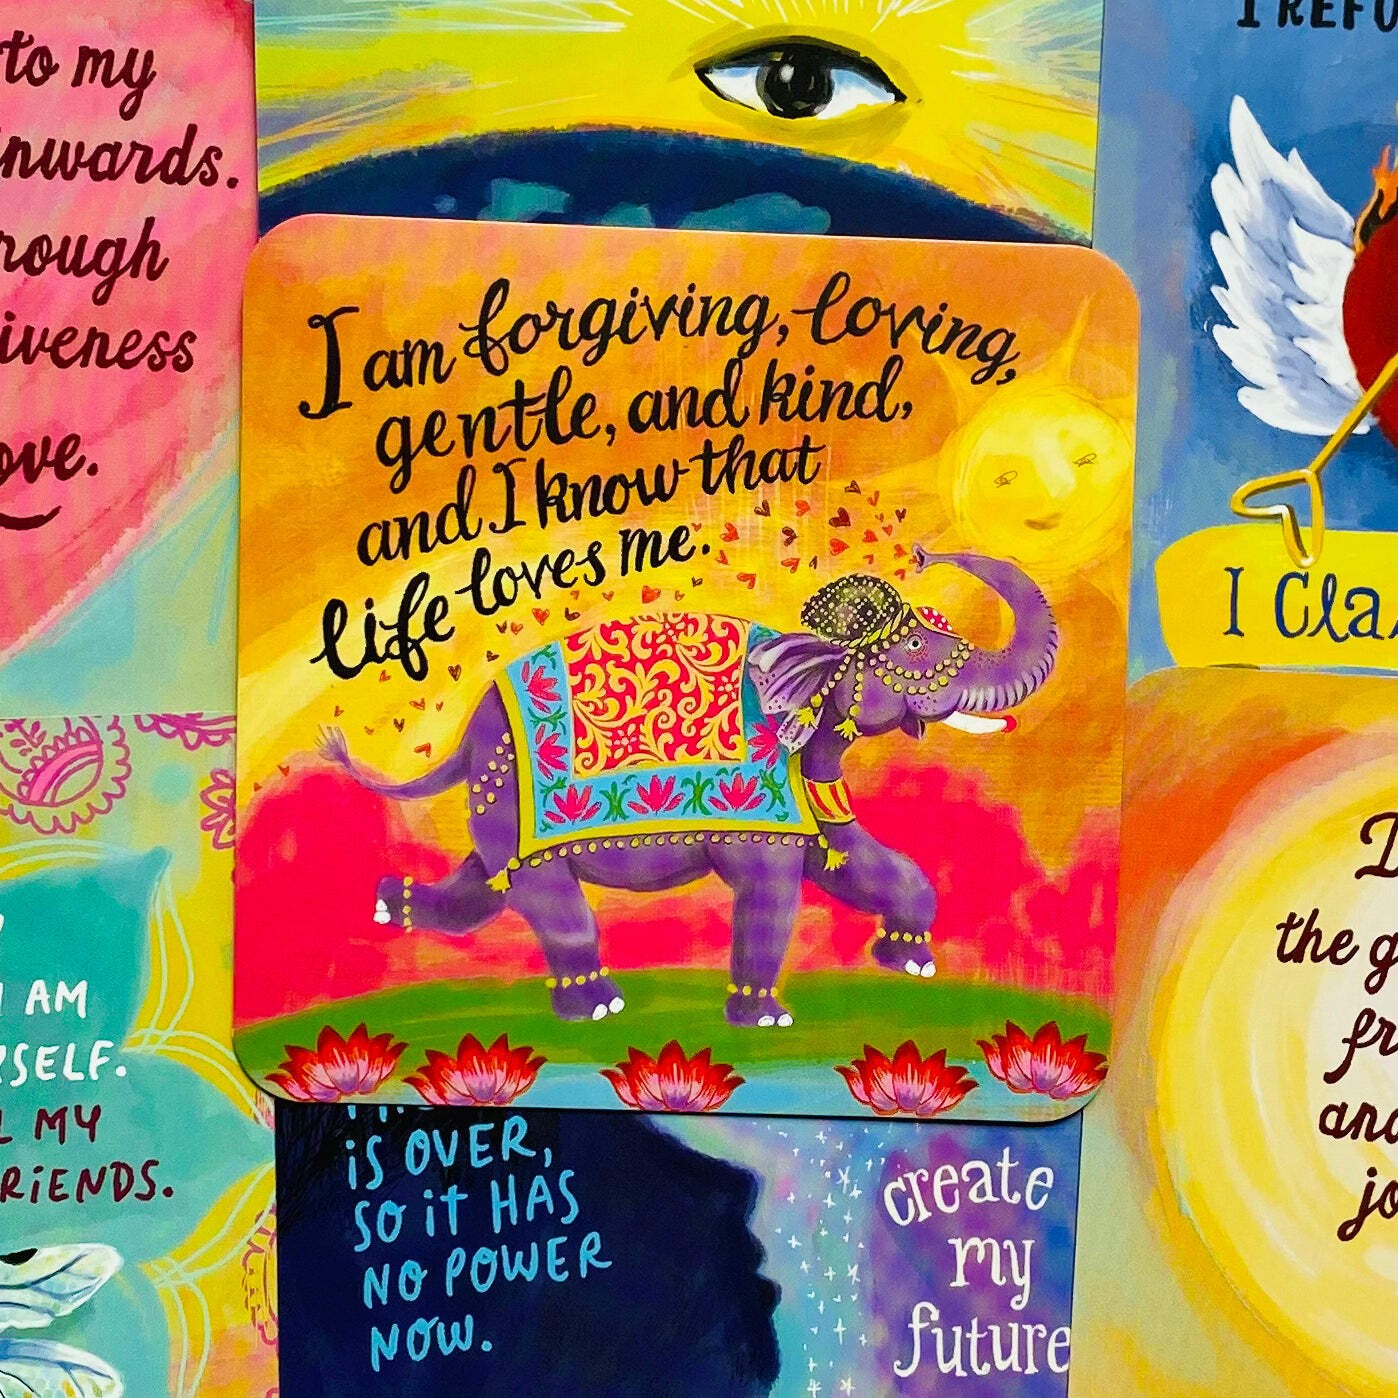 to my
I REFU
inwards.
rough
iveness
ove.
I am forgiving, loving,
gentle, and kind,
and I know that
life loves me.
I Cla
the g
fr
and
jo
I AM
YSELF.
L MY
RiENDS.
iS OVER,
SO iT HAS
NO POWER
NOW.
create
my
future